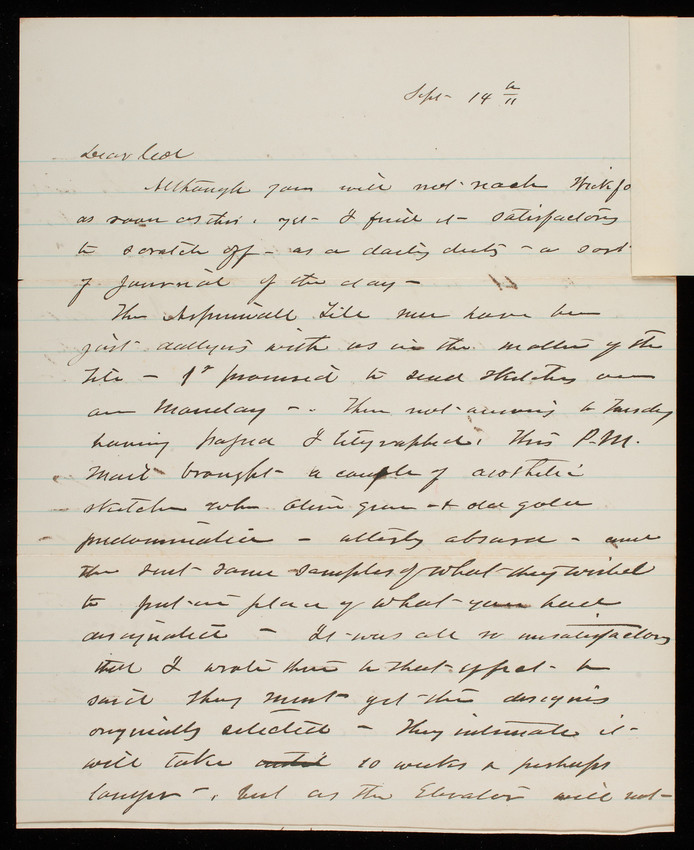 Sept 14 th/11
Dear Ced
Although you will not reach Wickfo
as soon as this, yet I find it satisfactory
to scratch off - as a daily duty - a sort
of Journal of the day -
The Aspinwall Tile men have been
just dallying with us in the matter of the
Tile - 1st promised to send sketches
on Monday - . Then not arriving & Tuesday
having passed I telegraphed. This P.M.
Mail brought a couple of aesthetic
sketches where Olive green & old gold
predominates - utterly absurd - and
the sent some samples of what they wished
to put in place of what you had
designated - It was all so unsatisfactory
that I wrote them to that effect &
said they must get the designs
originally selected - They intimate it
will take 10 weeks or perhaps
longer - , but as the Elevator will not